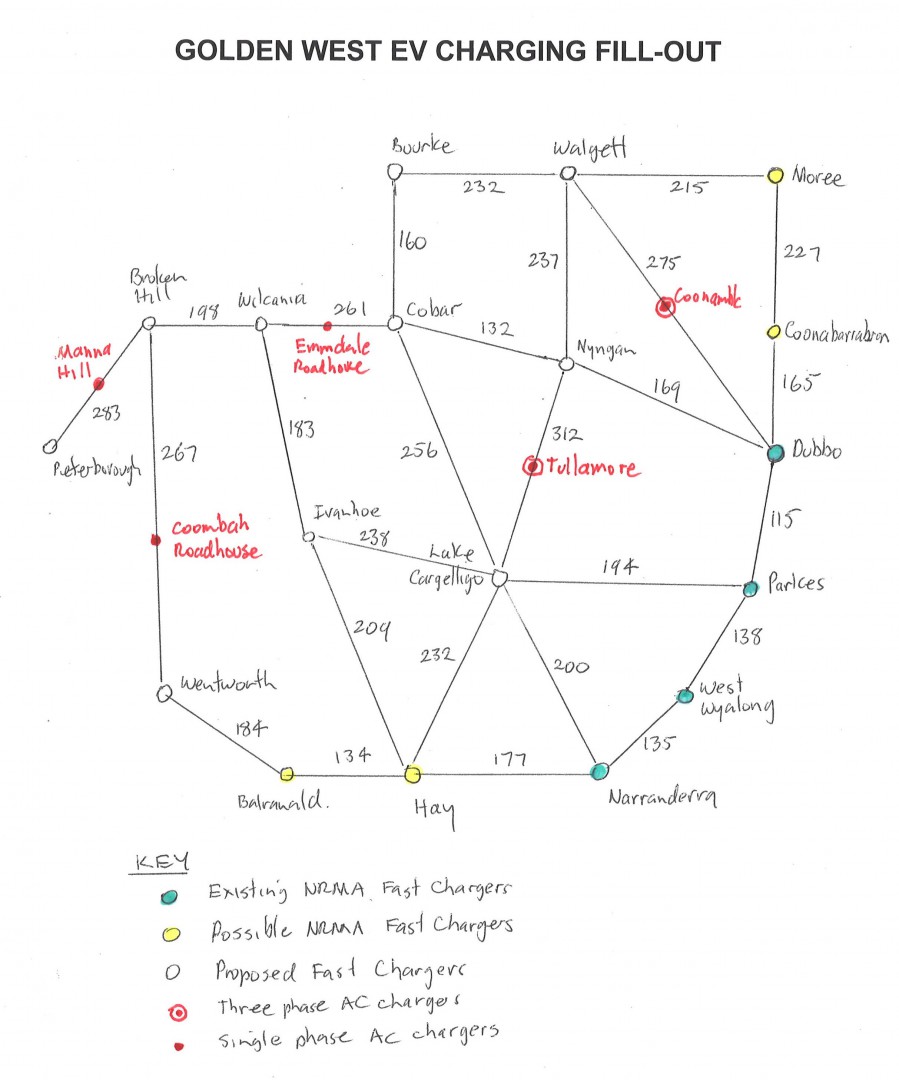 GOLDEN WEST EV CHARGING FILL-OUT
Bourke
Walgett
232
215
Moree
160
237
275
227
Broken
Hill
198
Wilcania
261
Cobar
Coonamble
132
Nyngan
Coonabarrabran
Manna
Hill
Emmdale
Roadhouse
283
169
165
Peterborough
267
183
256
312
Tullamore
Dubbo
Coombah
Roadhouse
Ivanhoe
238
Lake
Cargelligo
115
194
Parkes
209
232
200
138
Wentworth
West
Wyalong
184
134
177
135
Balranald.
Hay
Narranderra
KEY
Existing NRMA Fast Chargers
Possible NRMA Fast Chargers
Proposed Fast Chargers
Three phase AC chargers
Single phase AC chargers